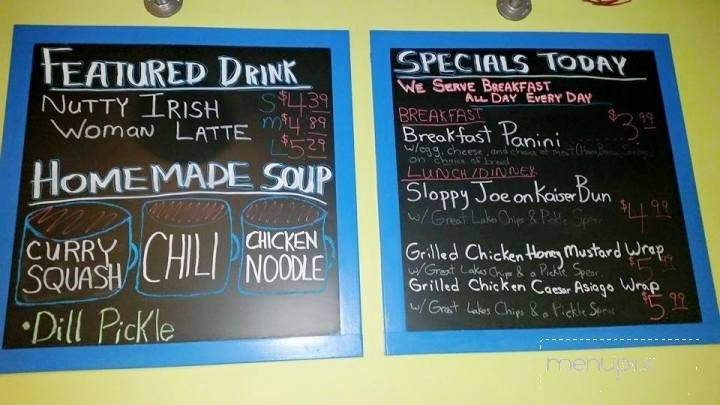 FEATURED DRINK
NUTTY IRISH
WOMAN LATTE
S $4.39
M $4.89
L $5.29
HOMEMADE SOUP
CURRY
SQUASH
CHILI
CHICKEN
NOODLE
•Dill Pickle
SPECIALS TODAY
WE SERVE BREAKFAST
ALL DAY EVERY DAY
BREAKFAST
$3.99
Breakfast Panini
w/egg, cheese, and choice of meat (Ham, Bacon, Sausage)
on choice of bread
LUNCH/DINNER
Sloppy Joe on Kaiser Bun
$4.99
w/ Great Lakes Chips & Pickle Spear
Grilled Chicken Honey Mustard Wrap
w/Great Lakes Chips & a Pickle Spear
Grilled Chicken Caesar Asiago Wrap
w/ Great Lakes Chips & a Pickle Spear
$5.99
menupix